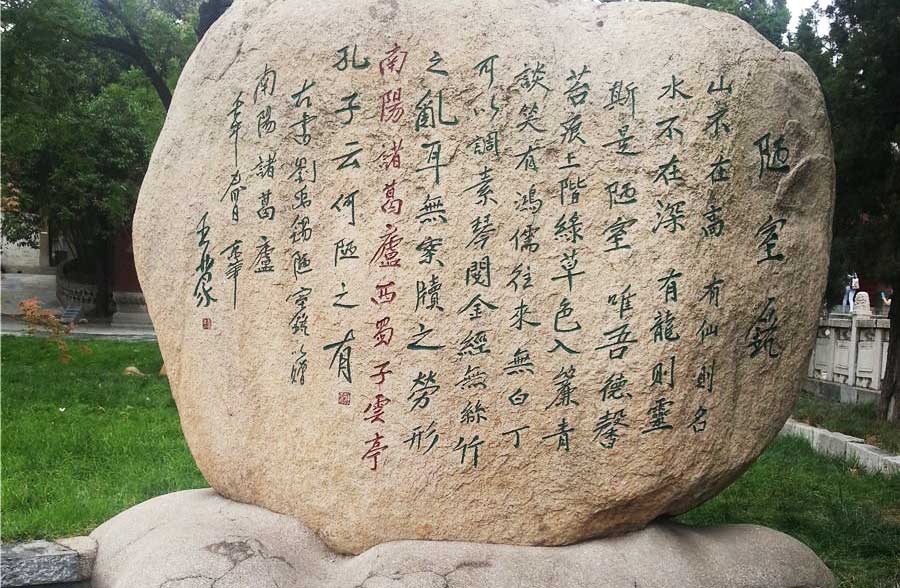 陋室銘
山不在高 有仙則名
水不在深 有龍則靈
斯是陋室 唯吾德馨
苔痕上階綠草色入簾青
談笑有鴻儒往來無白丁
可以調素琴閱金經無絲竹
之亂耳無案牘之勞形
南陽諸葛廬西蜀子雲亭
孔子云何陋之有
右書劉禹錫陋室銘以贈
南陽諸葛廬